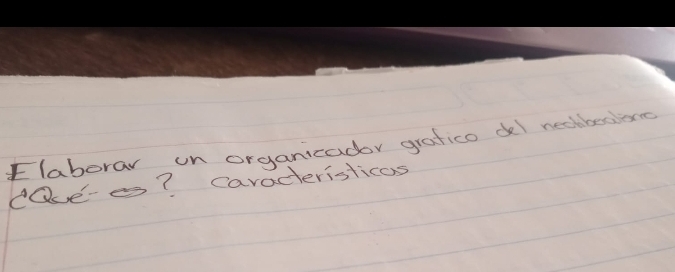 Elaborar un organizador grafico del neoliberalismo
¿Qué es? Características